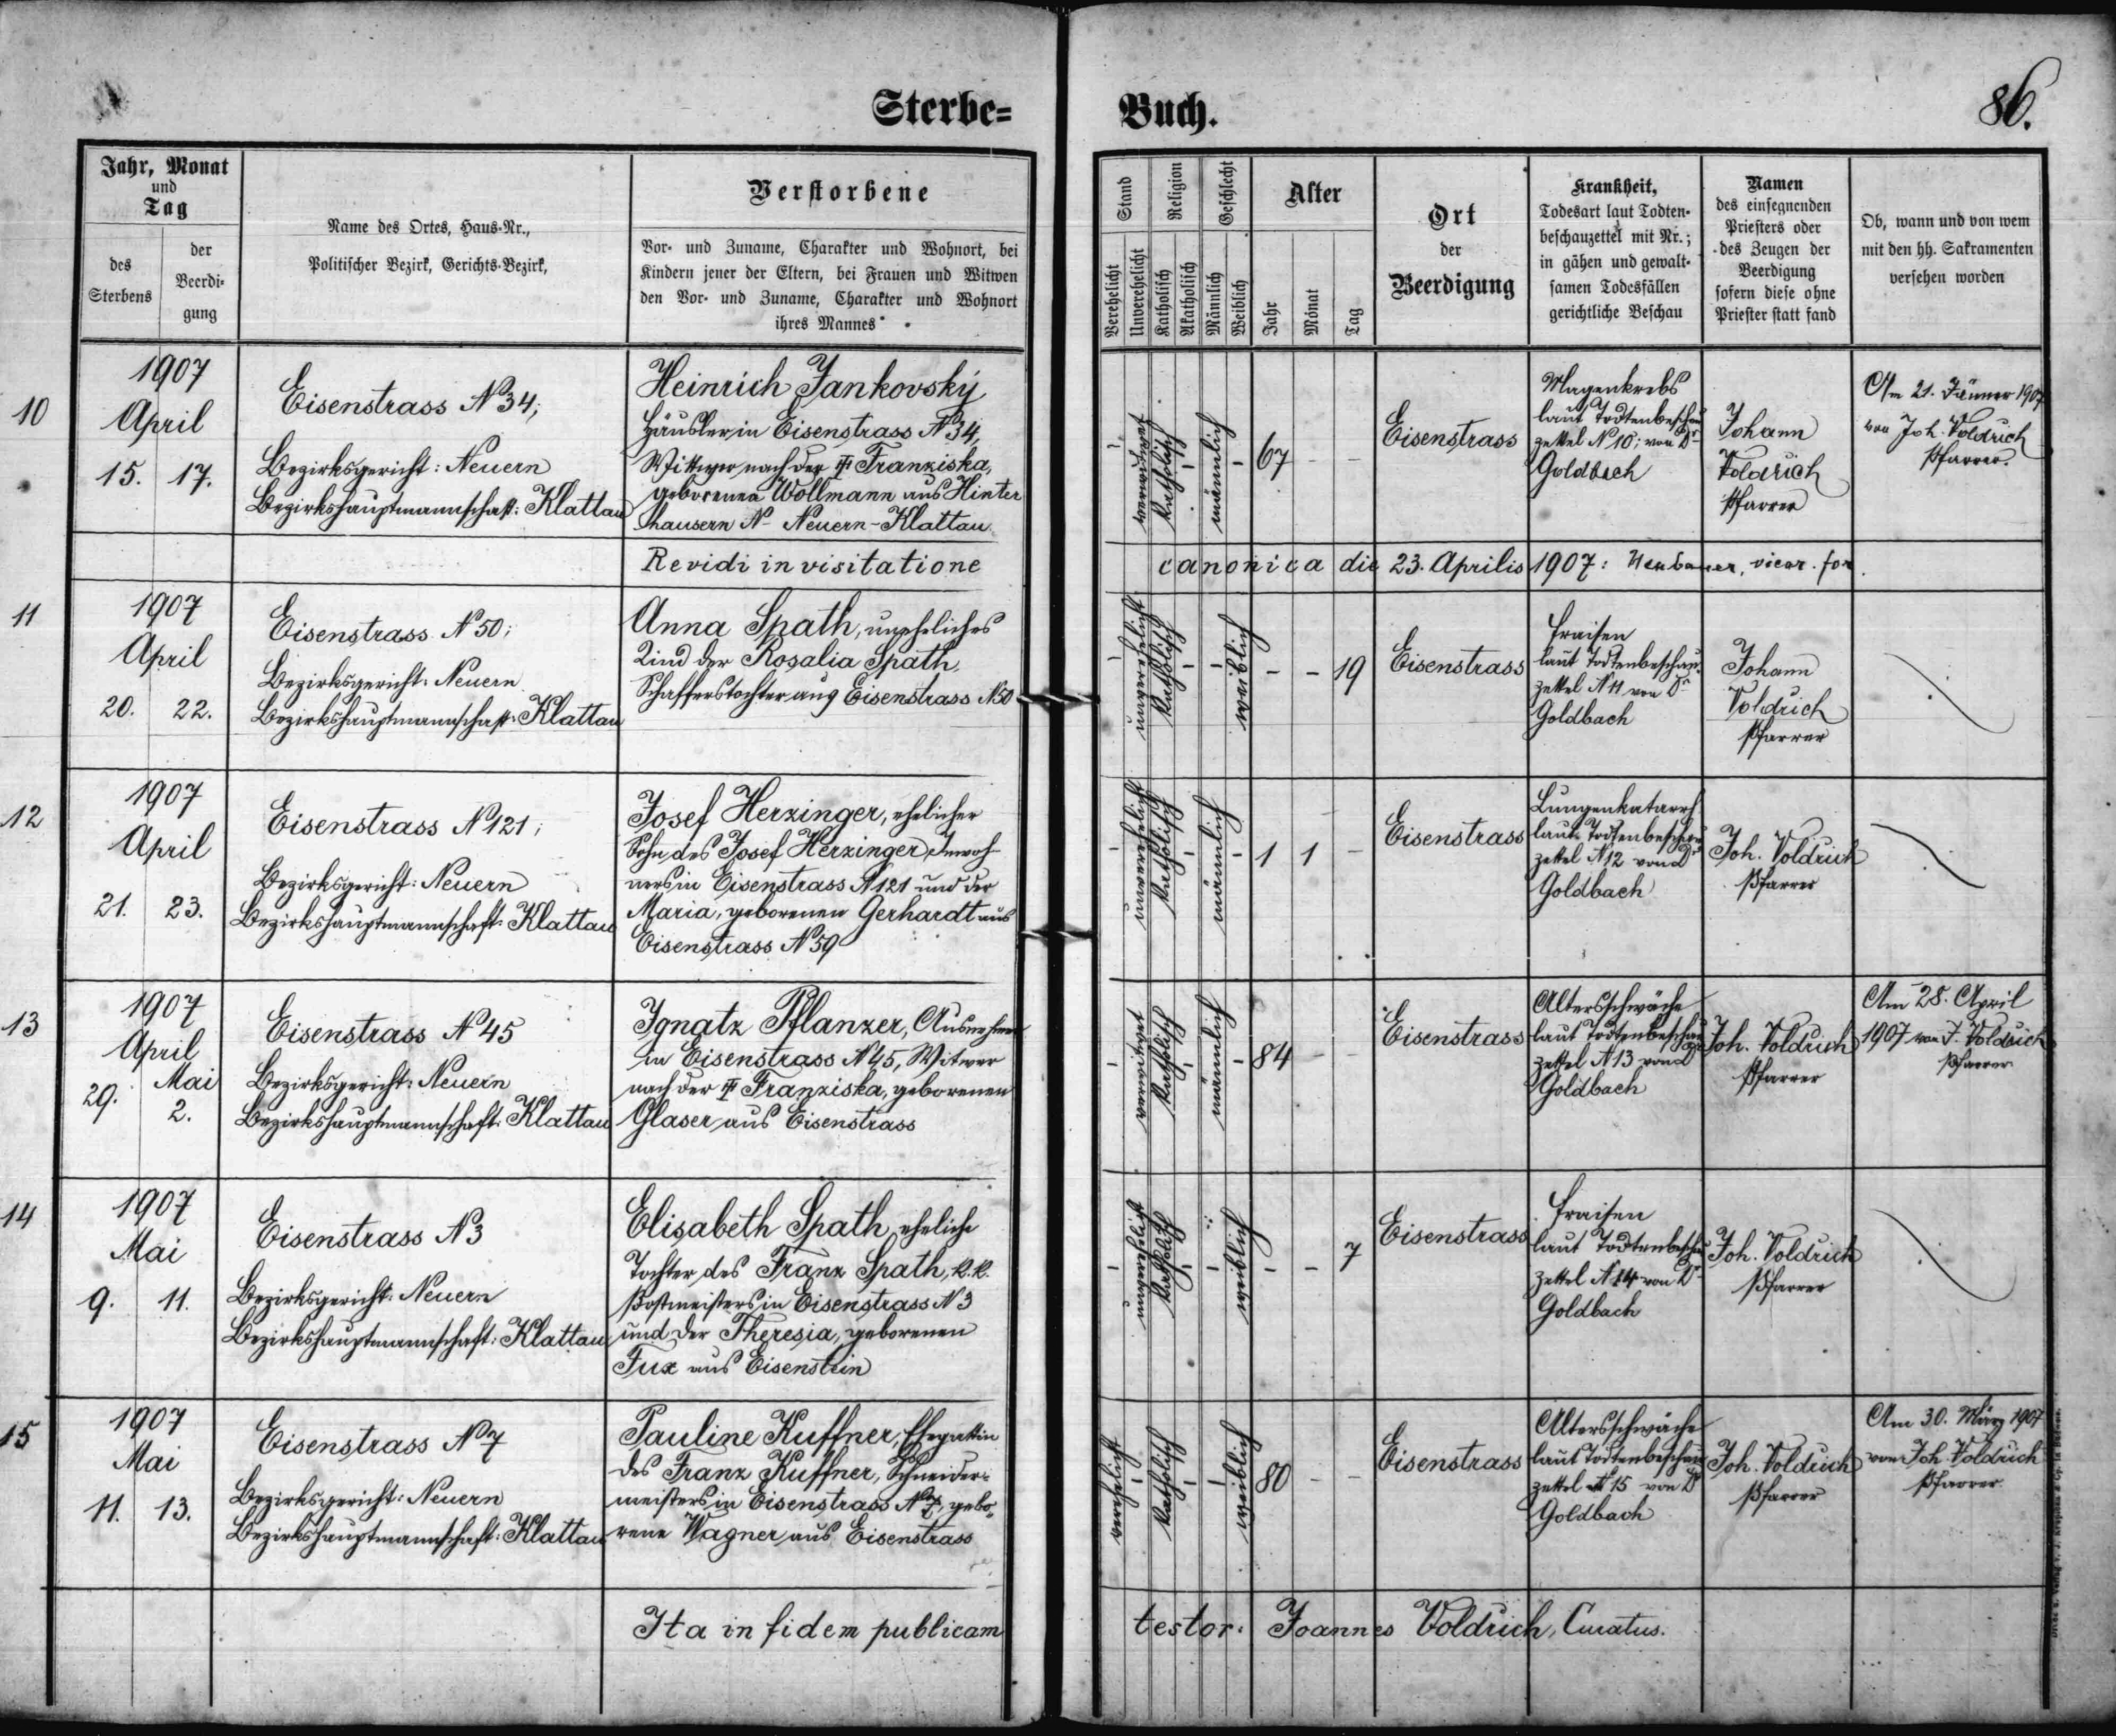 Sterbe=
Buch.
86.
Jahr, Monat
und
Tag
des
Sterbens
der
Beerdi-
gung
Name des Ortes, Haus-Nr.,
Politischer Bezirk, Gerichts-Bezirk,
Verstorbene
Vor- und Zuname, Charakter und Wohnort, bei
Kindern jener der Eltern, bei Frauen und Witwen
den Vor- und Zuname, Charakter und Wohnort
ihres Mannes
Stand
Verehelicht
Unverehelicht
Religion
Katholisch
Akatholisch
Geschlecht
Männlich
Weiblich
Alter
Jahr
Monat
Tag
Ort
der
Beerdigung
Krankheit,
Todesart laut Todten-
beschauzettel mit Nr.;
in gähen und gewalt-
samen Todesfällen
gerichtliche Beschau
Namen
des einsegnenden
Priesters oder
des Zeugen der
Beerdigung
sofern diese ohne
Priester statt fand
Ob, wann und von wem
mit den hh. Sakramenten
versehen worden
10
1907
April
15. 17.
Eisenstrass N 34;
Bezirksgericht: Neuern
Bezirkshauptmannschaft: Klattau
Heinrich Jankovský
Häusler in Eisenstrass N 34,
Wittwer nach der Franziska,
geborenen Wollmann aus Hinter
hausern N - Neuern - Klattau.
verwitwet
katholisch
männlich
67 - -
Eisenstrass
Magenkrebs
laut Todtenbeschau
zettel N 10; von Dr
Goldbach
Johann
Voldrich
Pfarrer
Am 21. Jänner 1907
von Joh. Voldrich
Pfarrer.
Revidi in visitatione canonica die 23. Aprilis 1907: Neubauer, vicar. for.
11
1907
April
20. 22.
Eisenstrass N 50;
Bezirksgericht: Neuern
Bezirkshauptmannschaft: Klattau
Anna Spath, uneheliches
Kind der Rosalia Spath
Schafferstochter aus Eisenstrass N 50
unverehelicht
katholisch
weiblich
- - 19
Eisenstrass
Fraisen
laut Todtenbeschau-
zettel N 11 von Dr
Goldbach
Johann
Voldrich
Pfarrer
12
1907
April
21. 23.
Eisenstrass N 121;
Bezirksgericht: Neuern
Bezirkshauptmannschaft: Klattau
Josef Herzinger, ehelicher
Sohn des Josef Herzinger, Inwoh
ners in Eisenstrass N 121 und der
Maria, geborenen Gerhardt aus
Eisenstrass N 59
unverehelicht
katholisch
männlich
1 1 -
Eisenstrass
Lungenkatarrh
laut Todtenbeschau
zettel N 12 von Dr
Goldbach
Joh. Voldrich
Pfarrer
13
1907
April
Mai
29. 2.
Eisenstrass N 45
Bezirksgericht: Neuern
Bezirkshauptmannschaft: Klattau
Ignatz Pflanzer, Ausnehmer
in Eisenstrass N 45, Witwer
nach der Franziska, geborenen
Glaser aus Eisenstrass
verwitwet
katholisch
männlich
84 - -
Eisenstrass
Altersschwäche
laut Todtenbeschau
zettel N 13 von Dr
Goldbach
Joh. Voldrich
Pfarrer
Am 28. April
1907 von J. Voldrich
Pfarrer
14
1907
Mai
9. 11.
Eisenstrass N 3
Bezirksgericht: Neuern
Bezirkshauptmannschaft: Klattau
Elisabeth Spath, eheliche
Tochter des Franz Spath, k.k.
Postmeisters in Eisenstrass N 3
und der Theresia, geborenen
Fux aus Eisenstein
unverehelicht
katholisch
weiblich
- - 7
Eisenstrass
Fraisen
laut Todtenbeschau
zettel N 14 von Dr
Goldbach
Joh. Voldrich
Pfarrer
15
1907
Mai
11. 13.
Eisenstrass N 7
Bezirksgericht: Neuern
Bezirkshauptmannschaft: Klattau
Pauline Kuffner, Ehegattin
des Franz Kuffner, Schneider-
meisters in Eisenstrass N 7, gebo
rene Wagner aus Eisenstrass
verehelicht
katholisch
weiblich
80 - -
Eisenstrass
Altersschwäche
laut Todtenbeschau
zettel N 15 von Dr
Goldbach
Joh. Voldrich
Pfarrer
Am 30. März 1907
von Joh. Voldrich
Pfarrer
Ita in fidem publicam testor: Joannes Voldrich, Curatus.